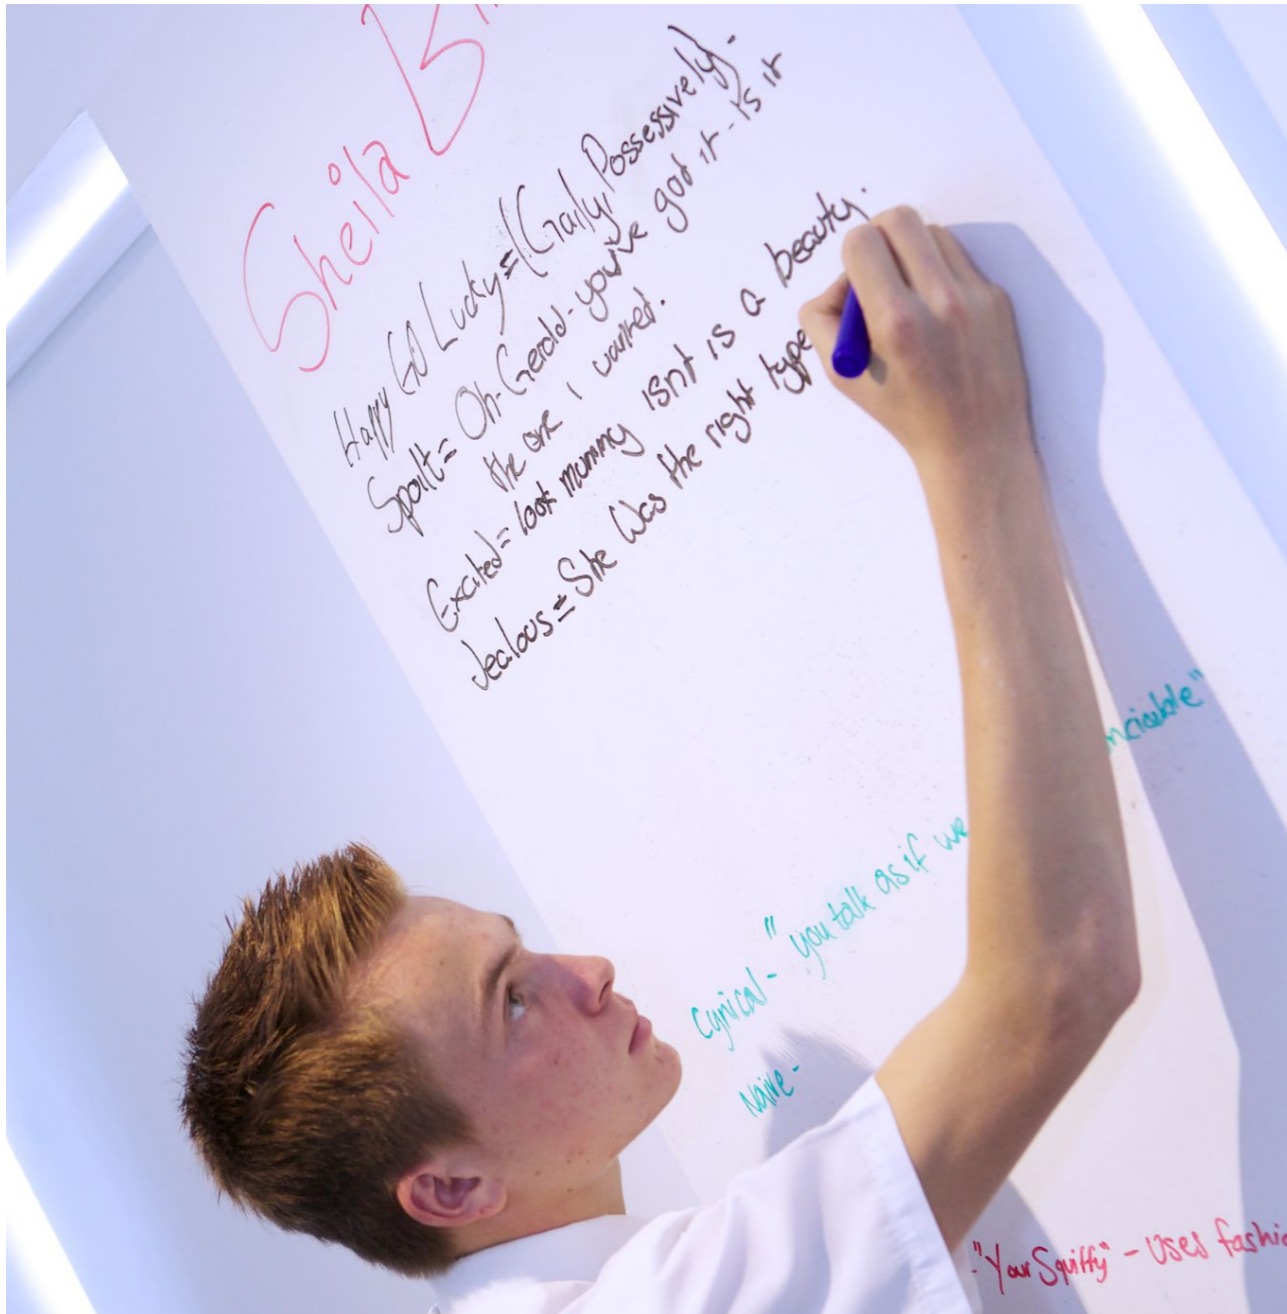 Sheila B
Happy GO Lucky = (Gaily, Possessively.
Spoilt = Oh-Gerald- you've got it - is it
the one I wanted.
Excited = look mummy isnt is a beauty.
Jealous = She Was the right type
nciable"
Cynical - "you talk as if we
Naive -
"Your Squiffy" - uses fashio